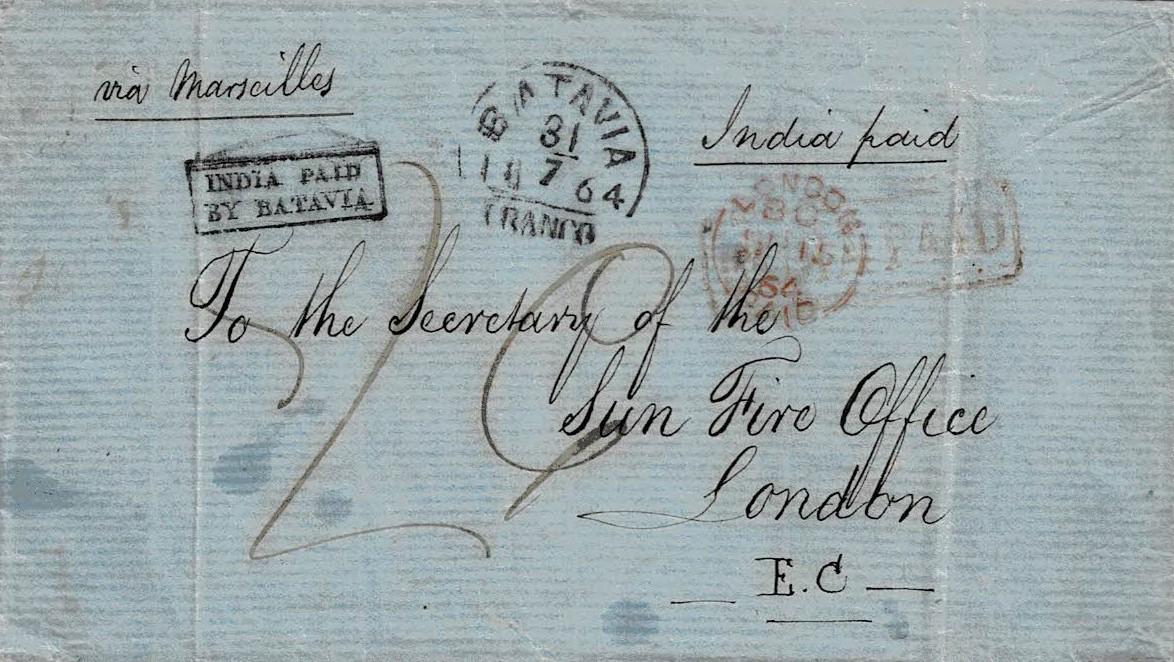 via Marseilles
BATAVIA
31
7 64
FRANCO
India paid
INDIA PAID
BY BATAVIA
LONDON
64
PAID
PAID
26
To the Secretary of the
Sun Fire Office
London
E.C